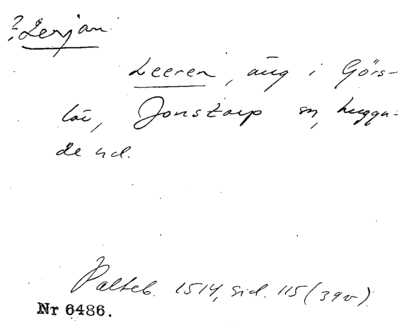 ? Lerjan.
Leeren, äng i Görs-
löv, Jonstorp sn, Luggu-
de hd.
Palteb. 1514, sid. 115 (39v).
Nr 6486.